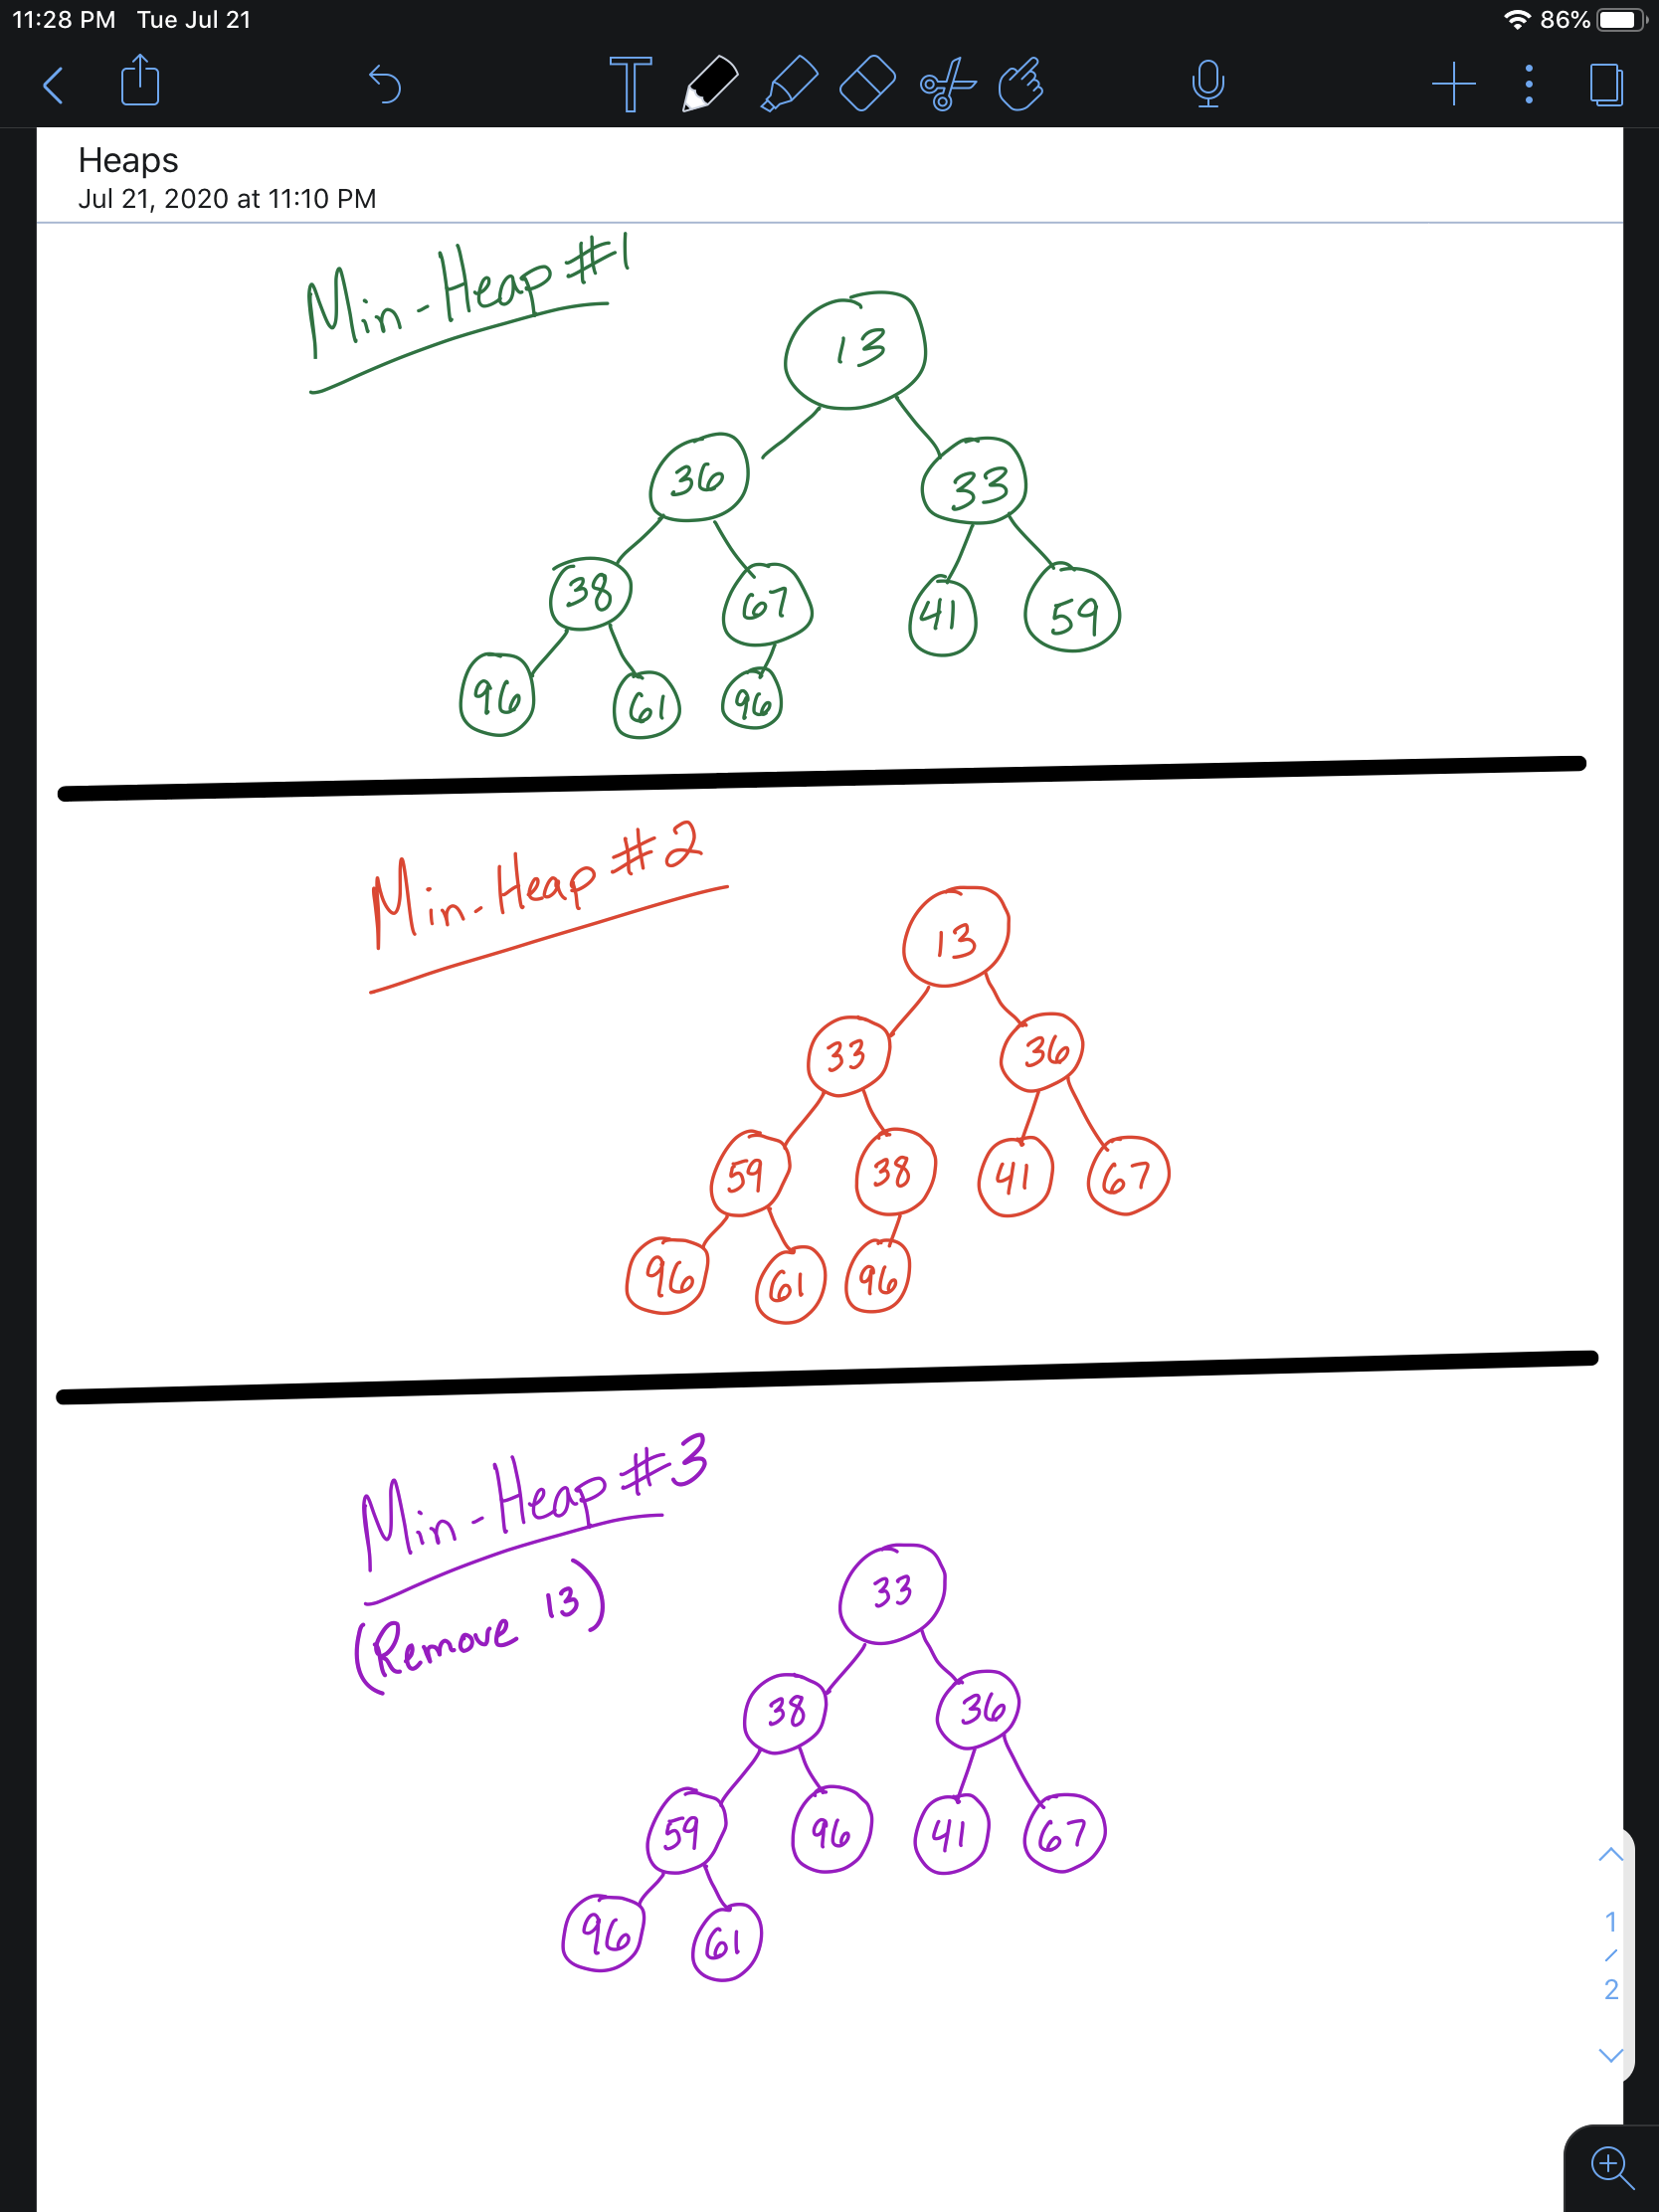 11:28 PM Tue Jul 21 86%
T
Heaps
Jul 21, 2020 at 11:10 PM
Min-Heap #1
13
36 33
38 67 41 59
96 61 96
Min-Heap #2
13
33 36
59 38 41 67
96 61 96
Min-Heap #3
(Remove 13)
33
38 36
59 96 41 67
96 61
1
/
2